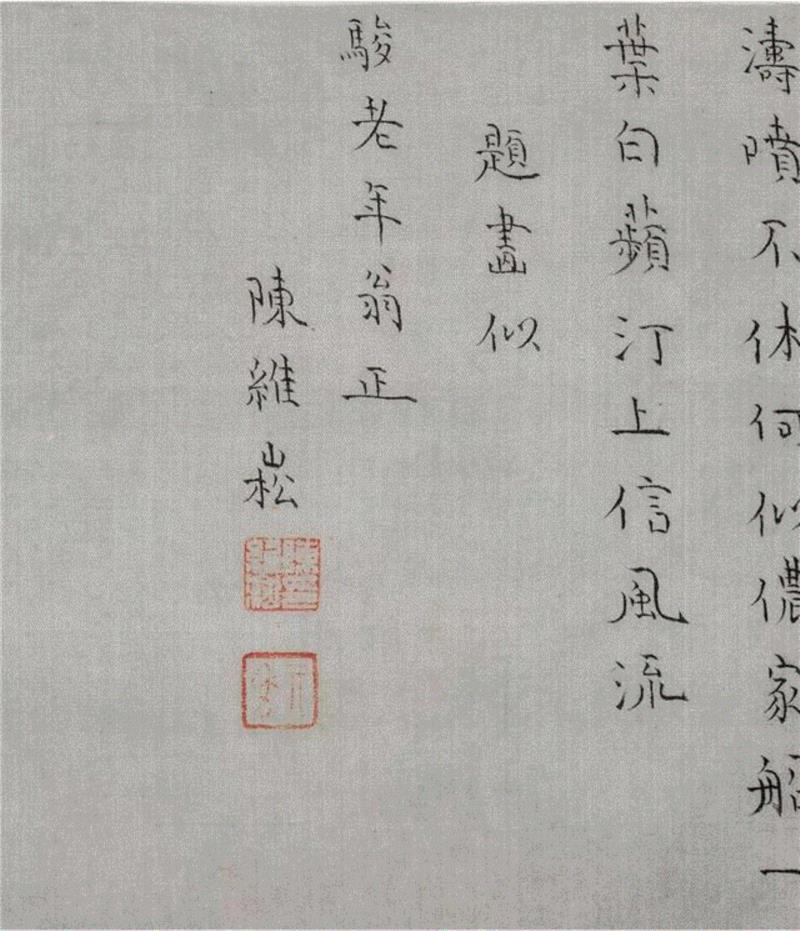 濤噴不休何似儂家船一
葉白蘋汀上信風流
題畫似
駿老年翁正
陳維崧